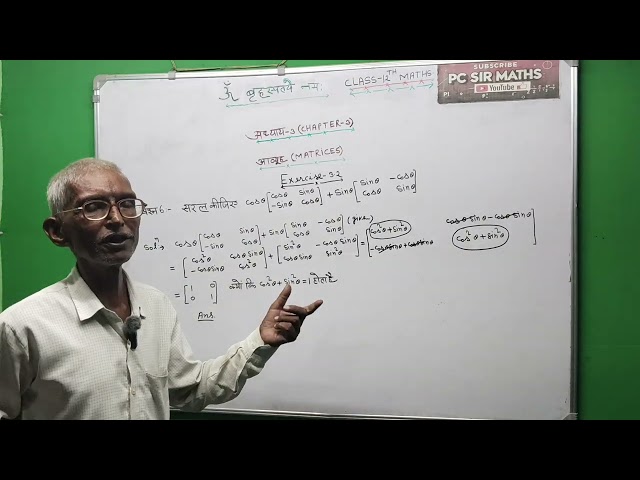 SUBSCRIBE
PC SIR MATHS
YouTube
ॐ बृहस्पतये नमः
CLASS-12TH MATHS
अध्याय-3 (CHAPTER-3)
आव्यूह (MATRICES)
Exercise-3.2
प्रश्न 6:- सरल कीजिए cosθ [cosθ sinθ; -sinθ cosθ] + sinθ [sinθ -cosθ; cosθ sinθ]
Solⁿ → cosθ [cosθ sinθ; -sinθ cosθ] + sinθ [sinθ -cosθ; cosθ sinθ] (given)
= [cos²θ cosθ sinθ; -cosθ sinθ cos²θ] + [sin²θ -cosθ sinθ; cosθ sinθ sin²θ] = [cos²θ + sin²θ cosθ sinθ - cosθ sinθ; -cosθ sinθ + cosθ sinθ cos²θ + sin²θ]
= [1 0; 0 1] क्यों कि cos²θ + sin²θ = 1 होता है
Ans.